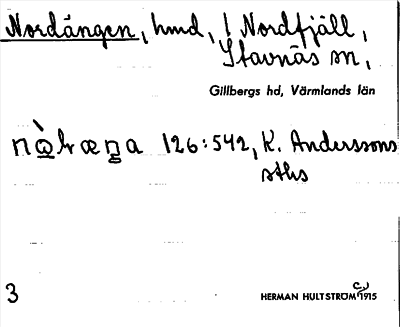 Nordängen, hmd, 1 Nordfjäll,
Stavnäs sn,
Gillbergs hd, Värmlands län
126:542, K. Anderssons
sths
3
HERMAN HULTSTRÖM 1915